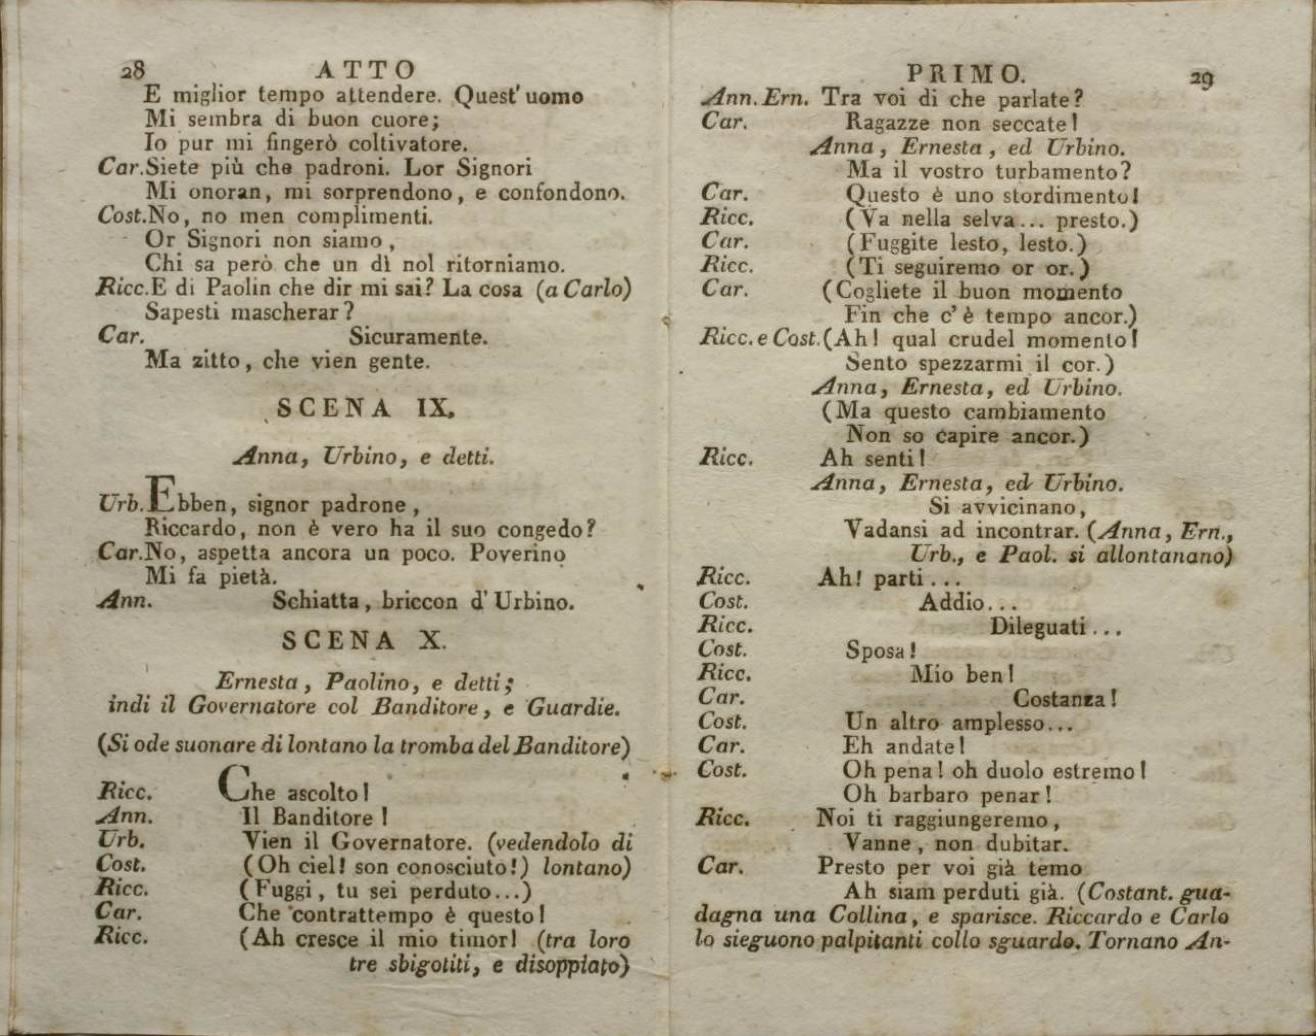 28 ATTO
E miglior tempo attendere. Quest' uomo
Mi sembra di buon cuore;
Io pur mi fingerò coltivatore.
Car. Siete più che padroni. Lor Signori
Mi onoran, mi sorprendono, e confondono.
Cost. No, no men complimenti.
Or Signori non siamo,
Chi sa però che un dì nol ritorniamo.
Ricc. E di Paolin che dir mi sai? La cosa (a Carlo)
Sapesti mascherar?
Car. Sicuramente.
Ma zitto, che vien gente.
SCENA IX.
Anna, Urbino, e detti.
Urb. Ebben, signor padrone,
Riccardo, non è vero ha il suo congedo?
Car. No, aspetta ancora un poco. Poverino
Mi fa pietà.
Ann. Schiatta, briccon d'Urbino.
SCENA X.
Ernesta, Paolino, e detti;
indi il Governatore col Banditore, e Guardie.
(Si ode suonare di lontano la tromba del Banditore)
Ricc. Che ascolto!
Ann. Il Banditore!
Urb. Vien il Governatore. (vedendolo di
Cost. (Oh ciel! son conosciuto!) lontano)
Ricc. (Fuggi, tu sei perduto...)
Car. Che contrattempo è questo!
Ricc. (Ah cresce il mio timor! (tra loro
tre sbigotiti, e disoppiato)
PRIMO. 29
Ann. Ern. Tra voi di che parlate?
Car. Ragazze non seccate!
Anna, Ernesta, ed Urbino.
Ma il vostro turbamento?
Car. Questo è uno stordimento!
Ricc. (Va nella selva... presto.)
Car. (Fuggite lesto, lesto.)
Ricc. (Ti seguiremo or or.)
Car. (Cogliete il buon momento
Fin che c'è tempo ancor.)
Ricc. e Cost. (Ah! qual crudel momento!
Sento spezzarmi il cor.)
Anna, Ernesta, ed Urbino.
(Ma questo cambiamento
Non so capire ancor.)
Ricc. Ah senti!
Anna, Ernesta, ed Urbino.
Si avvicinano,
Vadansi ad incontrar. (Anna, Ern.,
Urb., e Paol. si allontanano)
Ricc. Ah! parti...
Cost. Addio...
Ricc. Dileguati...
Cost. Sposa!
Ricc. Mio ben!
Car. Costanza!
Cost. Un altro amplesso...
Car. Eh andate!
Cost. Oh pena! oh duolo estremo!
Oh barbaro penar!
Ricc. Noi ti raggiungeremo,
Vanne, non dubitar.
Car. Presto per voi già temo
Ah siam perduti già. (Costant. gua-
dagna una Collina, e sparisce. Riccardo e Carlo
lo sieguono palpitanti collo sguardo. Tornano An-